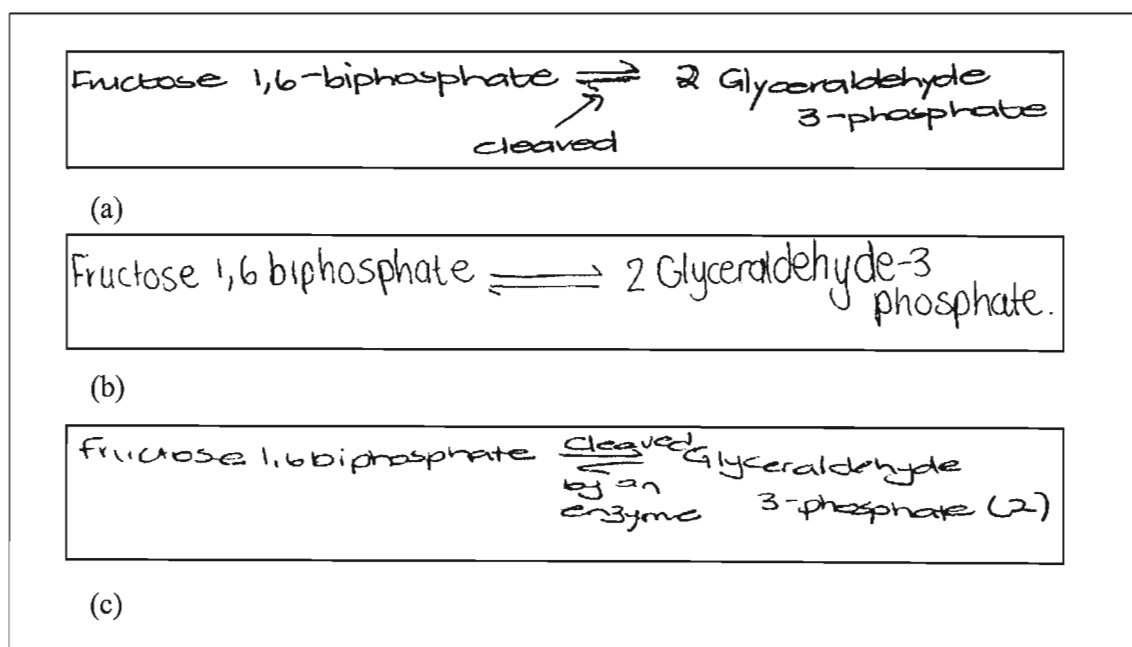 Fructose 1,6-biphosphate ⇌ 2 Glyceraldehyde
3-phosphate
cleaved
(a)
Fructose 1,6 biphosphate ⇌ 2 Glyceraldehyde-3
phosphate.
(b)
Fructose 1,6 biphosphate ⇌ Cleaved Glyceraldehyde
by an
enzyme 3-phosphate (2)
(c)